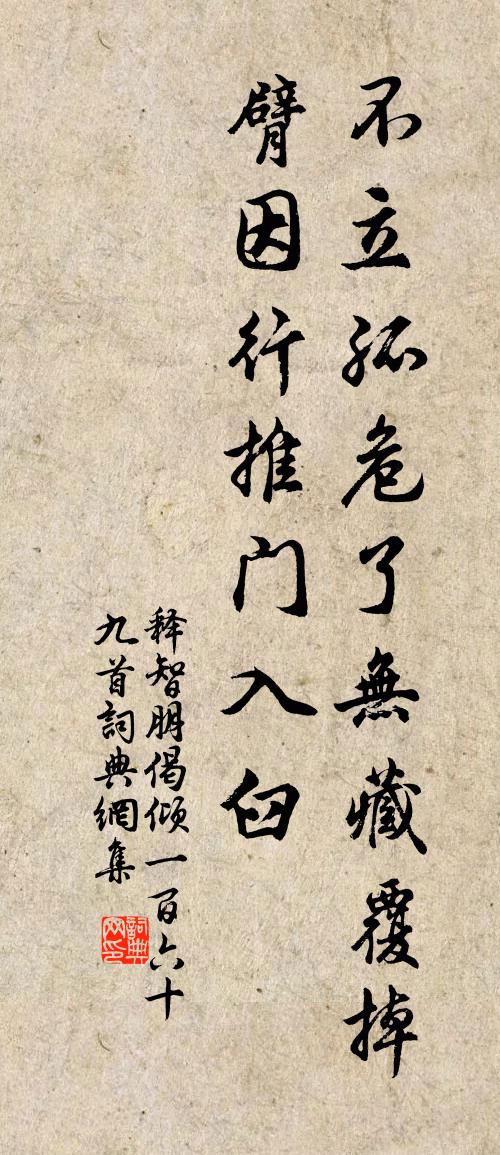 不立孤危了無藏覆掉
臂因行推門入臼
释智朋偈倾一百六十
九首詞典網集
詞典网印